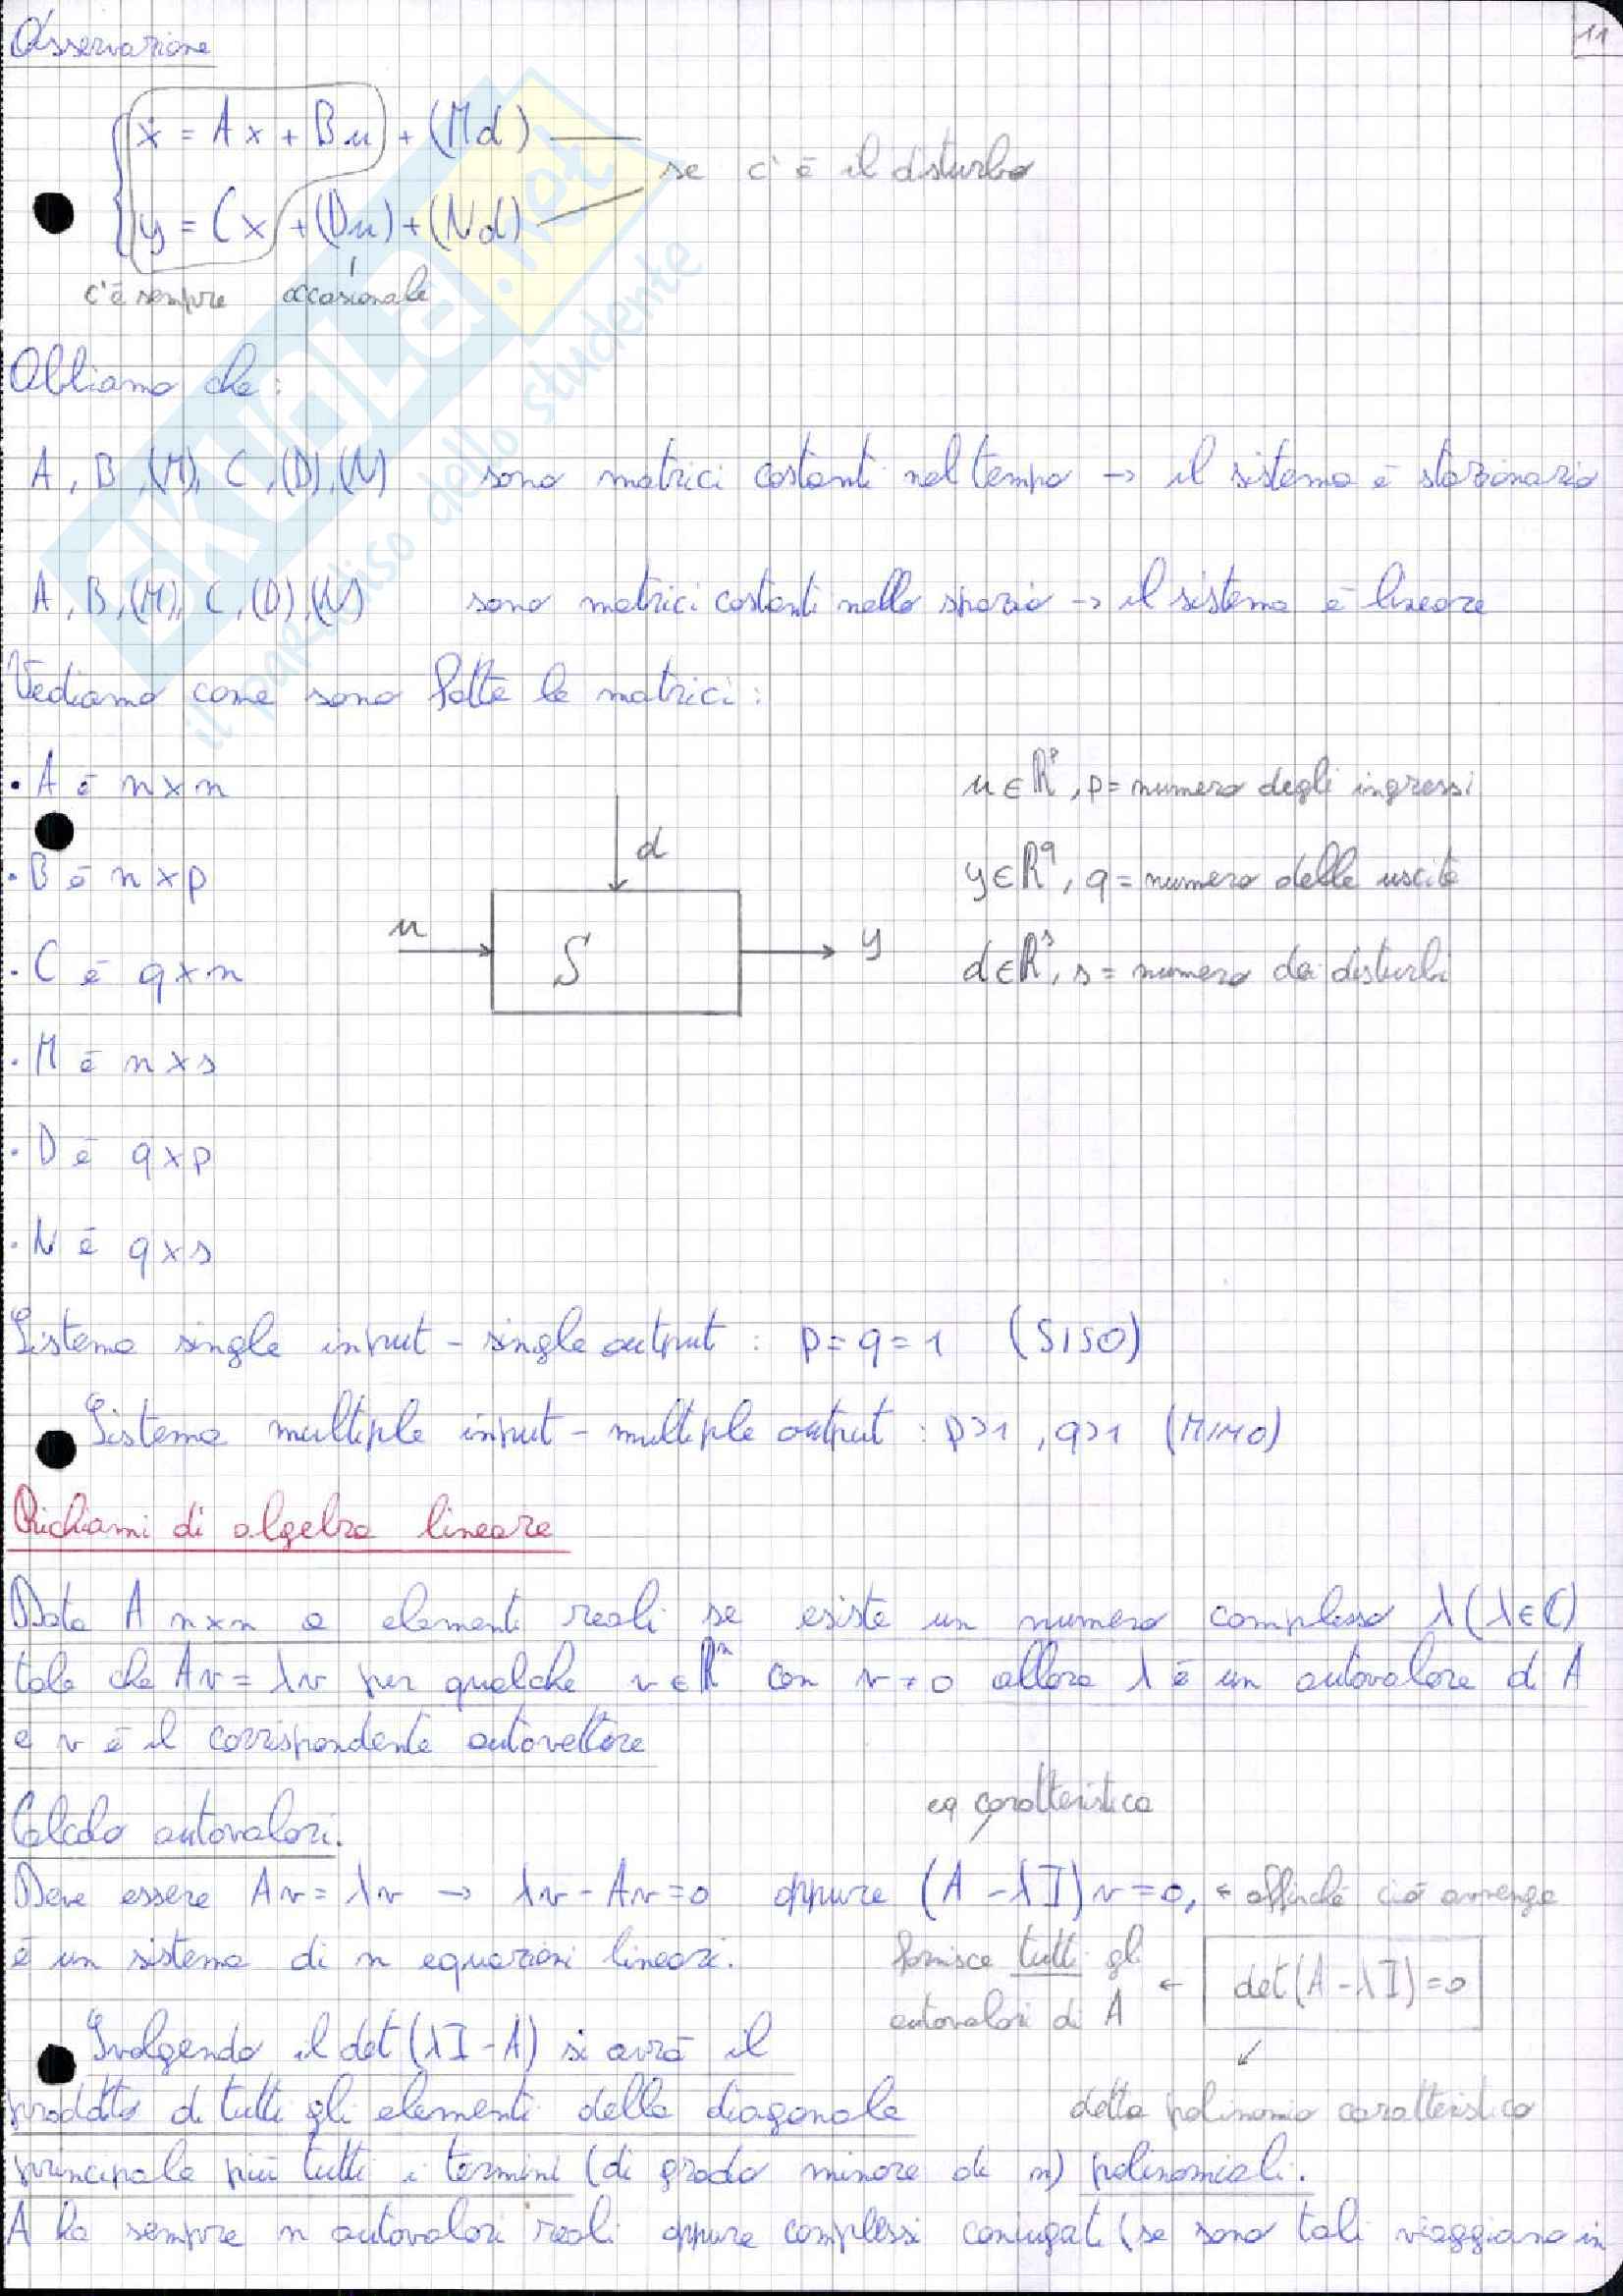 11
Osservazione
ẋ = Ax + Bu + (Md)
se c'è il disturbo
y = Cx + (Du) + (Nd)
c'è sempre occasionale
Abbiamo che:
A, B, (M), C, (D), (N) sono matrici costanti nel tempo → il sistema è stazionario
A, B, (M), C, (D), (N) sono matrici costanti nello spazio → il sistema è lineare
Vediamo come sono fatte le matrici:
• A è n×n
u ∈ ℝᵖ, p = numero degli ingressi
d
• B è n×p
y ∈ ℝ^q, q = numero delle uscite
u
S
y
• C è q×n
d ∈ ℝˢ, s = numero dei disturbi
• M è n×s
• D è q×p
• N è q×s
Sistema single input - single output : p = q = 1 (SISO)
Sistema multiple input - multiple output : p>1, q>1 (MIMO)
Richiami di algebra lineare
Data A n×n a elementi reali se esiste un numero complesso λ (λ∈ℂ)
tale che Av = λv per qualche v ∈ ℝⁿ con v ≠ 0 allora λ è un autovalore di A
e v è il corrispondente autovettore
eq caratteristica
Calcolo autovalori.
Deve essere Av = λv → λv - Av = 0 oppure (A - λI)v = 0, ← affinché ciò avvenga
è un sistema di n equazioni lineari.
fornisce tutti gli
autovalori di A ← det(A - λI) = 0
Svolgendo il det(λI - A) si avrà il
prodotto di tutti gli elementi della diagonale
detto polinomio caratteristico
principale più tutti i termini (di grado minore di n) polinomiali.
A ha sempre n autovalori reali oppure complessi coniugati (se sono tali viaggiano in
ekuna.net
il paradiso dello studente